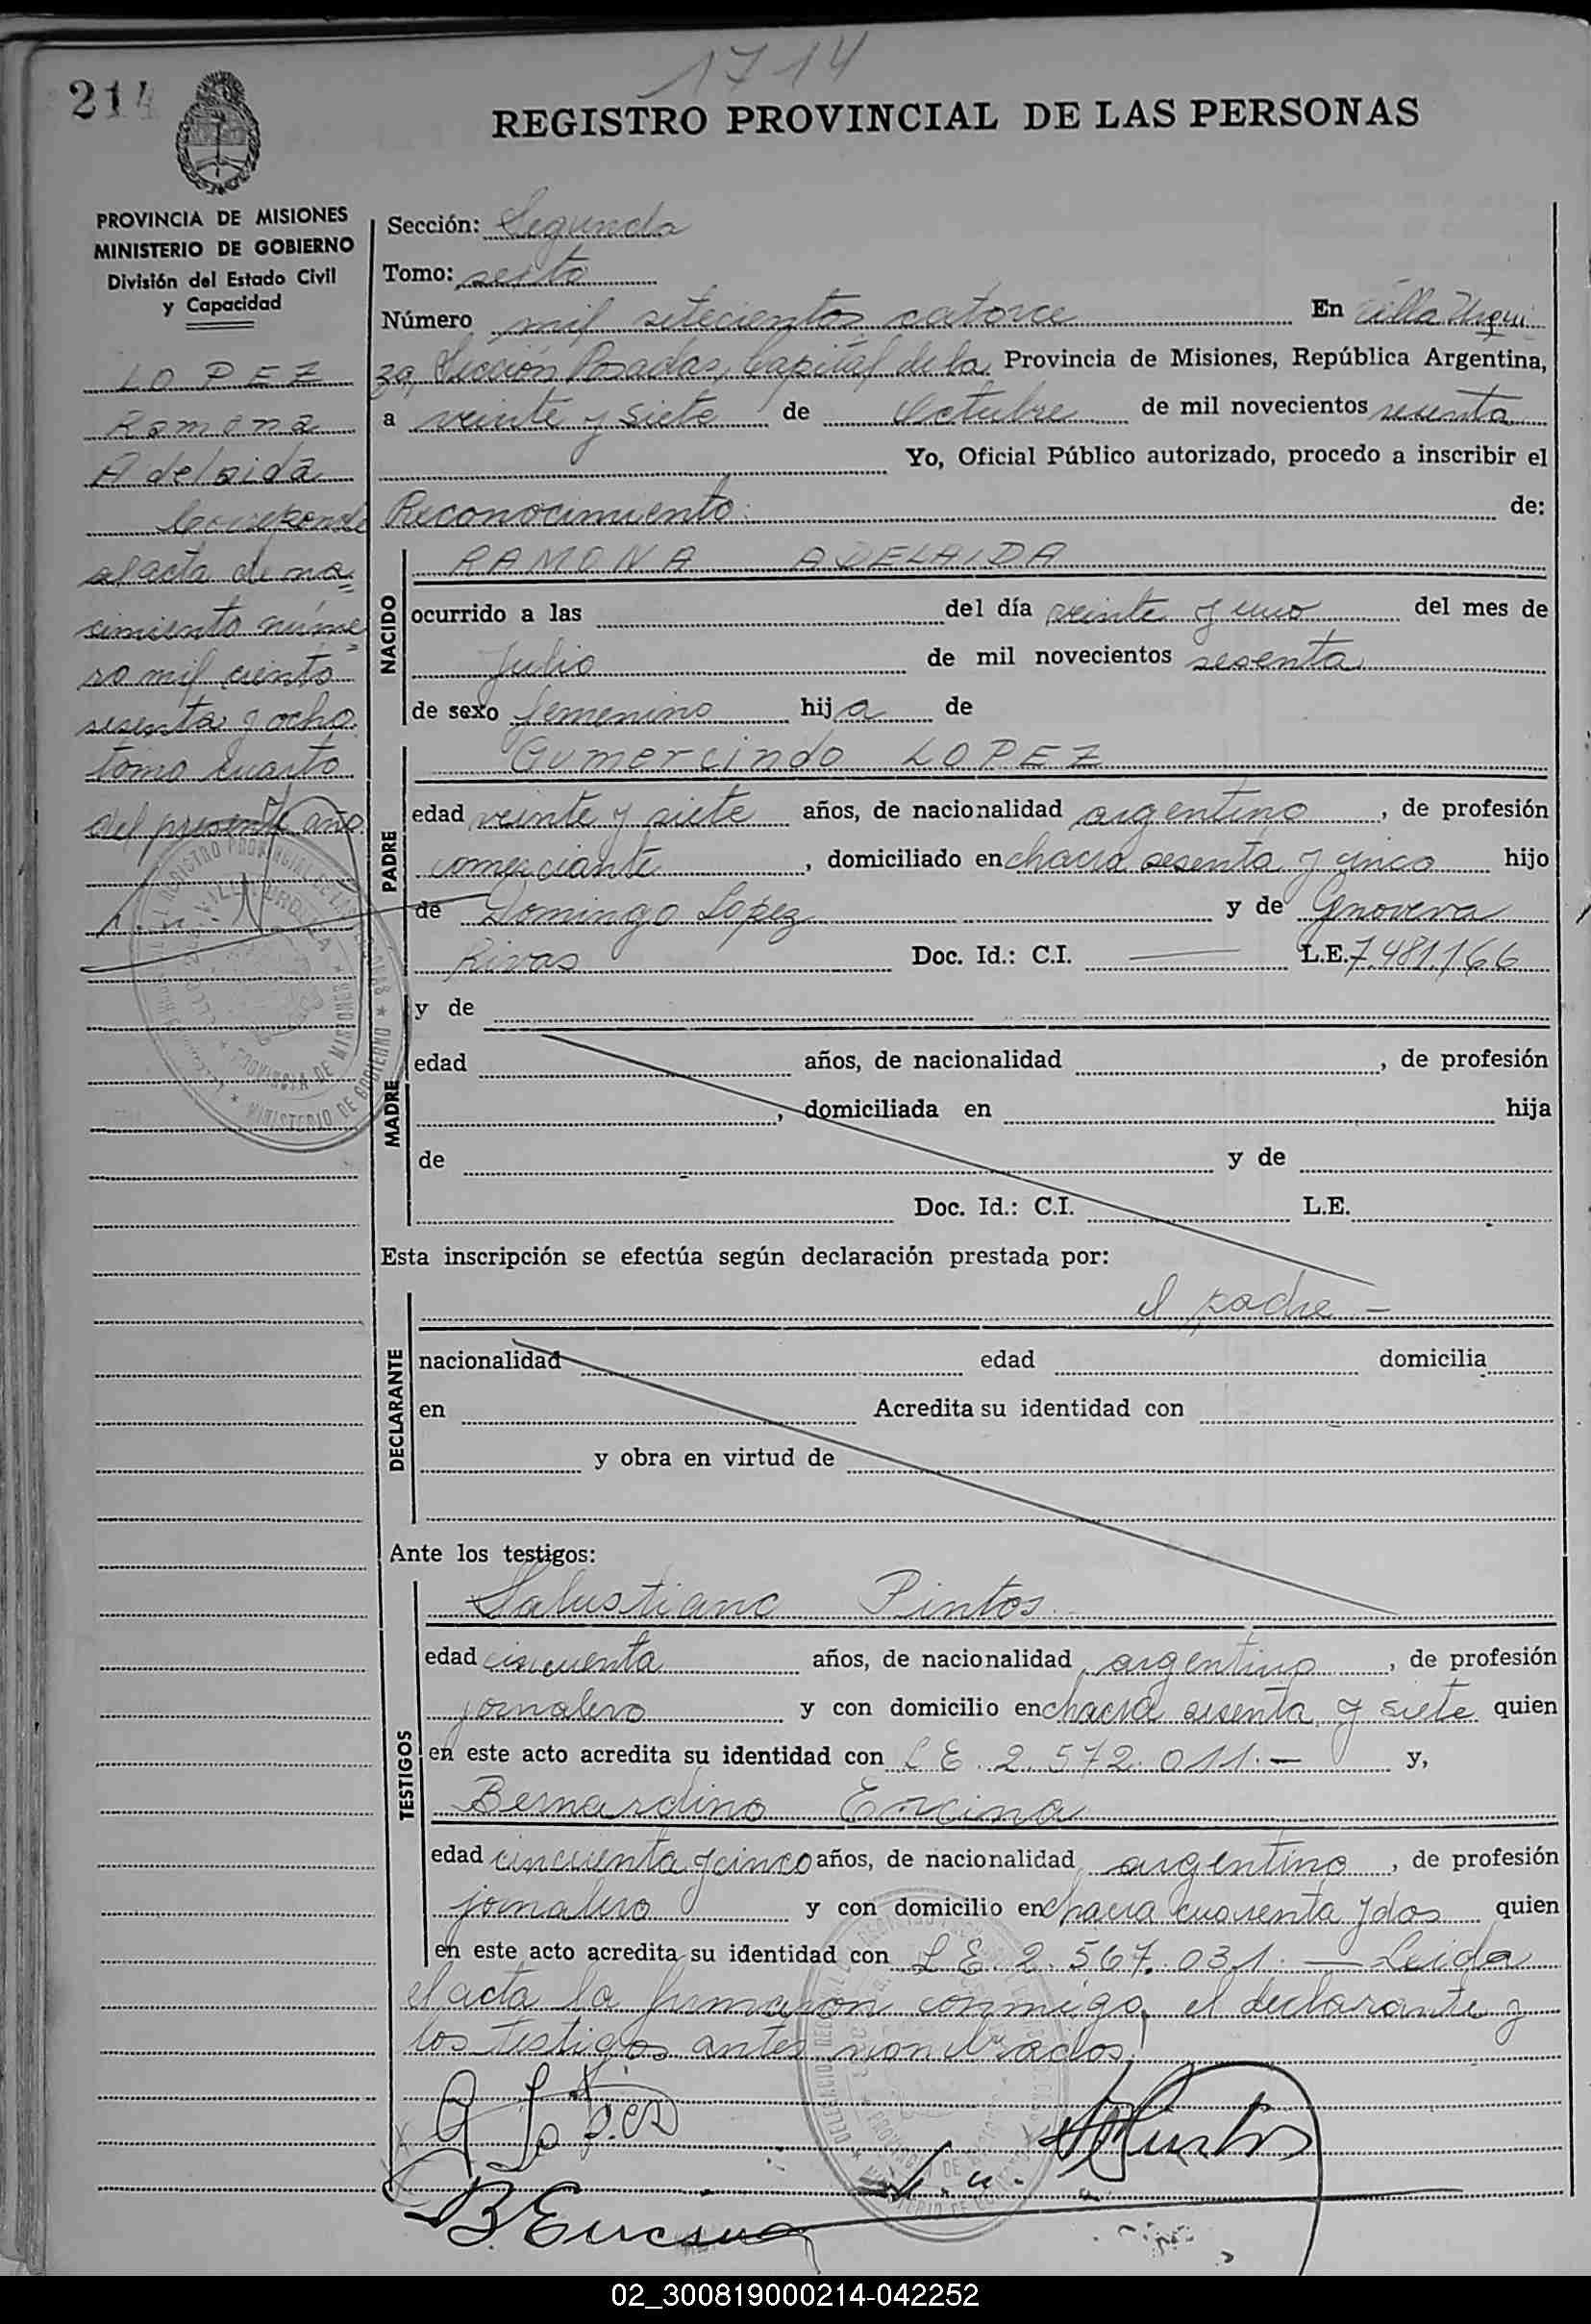 1714
214
REGISTRO PROVINCIAL DE LAS PERSONAS
PROVINCIA DE MISIONES
MINISTERIO DE GOBIERNO
División del Estado Civil
y Capacidad
LOPEZ
Ramona
Adelaida
Corresponde
al acta de na
cimiento núme
ro mil ciento
sesenta y ocho
tomo cuarto
del presente año
Sección: Segunda
Tomo: sexto
Número mil setecientos catorce En Villa Urqui
za, Sección Posadas, Capital de la Provincia de Misiones, República Argentina,
a veinte y siete de Octubre de mil novecientos sesenta
Yo, Oficial Público autorizado, procedo a inscribir el
Reconocimiento de:
NACIDO
RAMONA ADELAIDA
ocurrido a las del día veinte y uno del mes de
Julio de mil novecientos sesenta
de sexo femenino hija de
PADRE
Gumercindo LOPEZ
edad veinte y siete años, de nacionalidad argentino, de profesión
comerciante, domiciliado en chacra sesenta y cinco hijo
de Domingo Lopez y de Genoveva
Rivas Doc. Id.: C.I. — L.E. 7.481.166
MADRE
y de
edad años, de nacionalidad , de profesión
, domiciliada en hija
de y de
Doc. Id.: C.I. L.E.
Esta inscripción se efectúa según declaración prestada por:
DECLARANTE
el padre –
nacionalidad edad domicilia
en Acredita su identidad con
y obra en virtud de
Ante los testigos:
TESTIGOS
Salustiano Pintos
edad cincuenta años, de nacionalidad argentino, de profesión
jornalero y con domicilio en chacra sesenta y siete quien
en este acto acredita su identidad con L E. 2.572.011.– y,
Bernardino Encina
edad cincuenta y cinco años, de nacionalidad argentino, de profesión
jornalero y con domicilio en chacra cuarenta y dos quien
en este acto acredita su identidad con L E. 2.567.031. — Leida
el acta la firmaron conmigo, el declarante y
los testigos antes nombrados.
G Lopez
B Encina
02_300819000214-042252